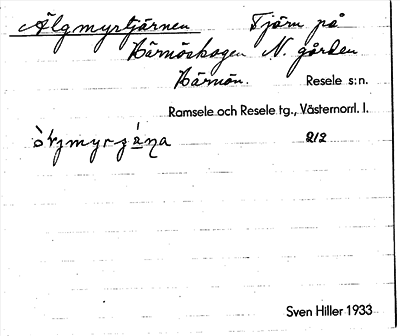 Älgmyrtjärnen Tjärn på
Härnöskogen N. gården
Härnön. Resele s:n.
Ramsele och Resele tg., Västernorrl. l.
212
Sven Hiller 1933